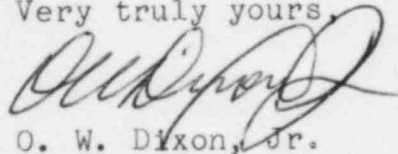 Very truly yours,
O. W. Dixon, Jr.
O. W. Dixon, Jr.